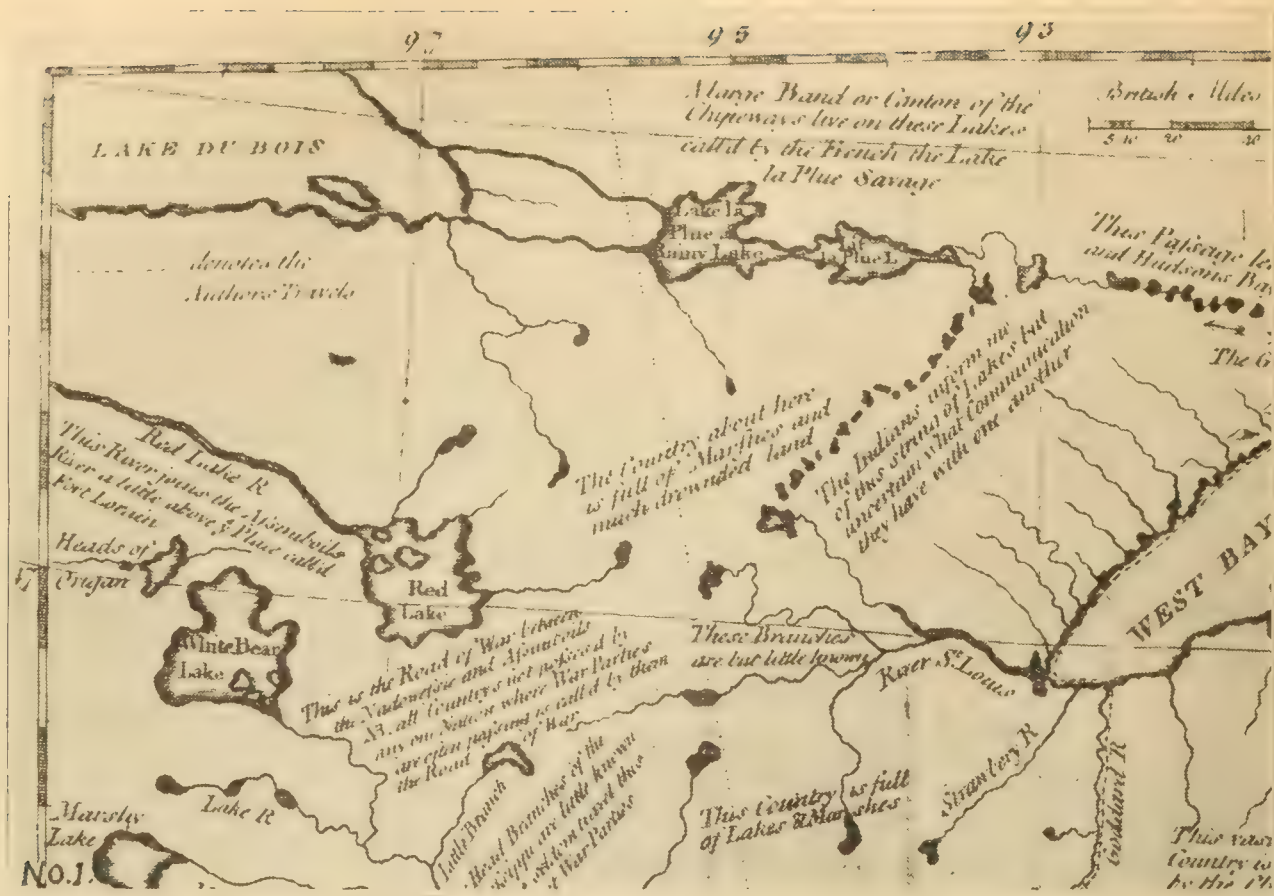 97 95 93
A large Band or Canton of the
Chipeways live on these Lakes
call'd by the French the Lake
la Plue Savage
British Miles
5 10 20 40
LAKE DU BOIS
denotes the
Authors Travels
Lake la
Plue or
Rainy Lake
la Plue L
This Passage le
and Hudsons Ba
The G
Red Lake R
This River joins the Assiniboils
River a little above ye Place call'd
Fort Lorrain
The Country about here
is full of Marshes and
much drownded land
The Indians inform me
of this string of Lakes but
uncertain what Communication
they have with one another
Heads of
Origan
Red
Lake
White Bear
Lake
This is the Road of War between
the Nadowessie and Assiniboils
NB. all Countrys not possess'd by
any one Nation where War Parties
are often passing is call'd by them
the Road of War
These Branches
are but little known
River St. Louis
WEST BAY
Marshy
Lake
Lake R
Little Branch
Head Branches of the
are little known
seldom travel this
War Parties
This Country is full
of Lakes & Marshes
Strawbery R
Goddard R
This vast
Country is
by the
No.1.